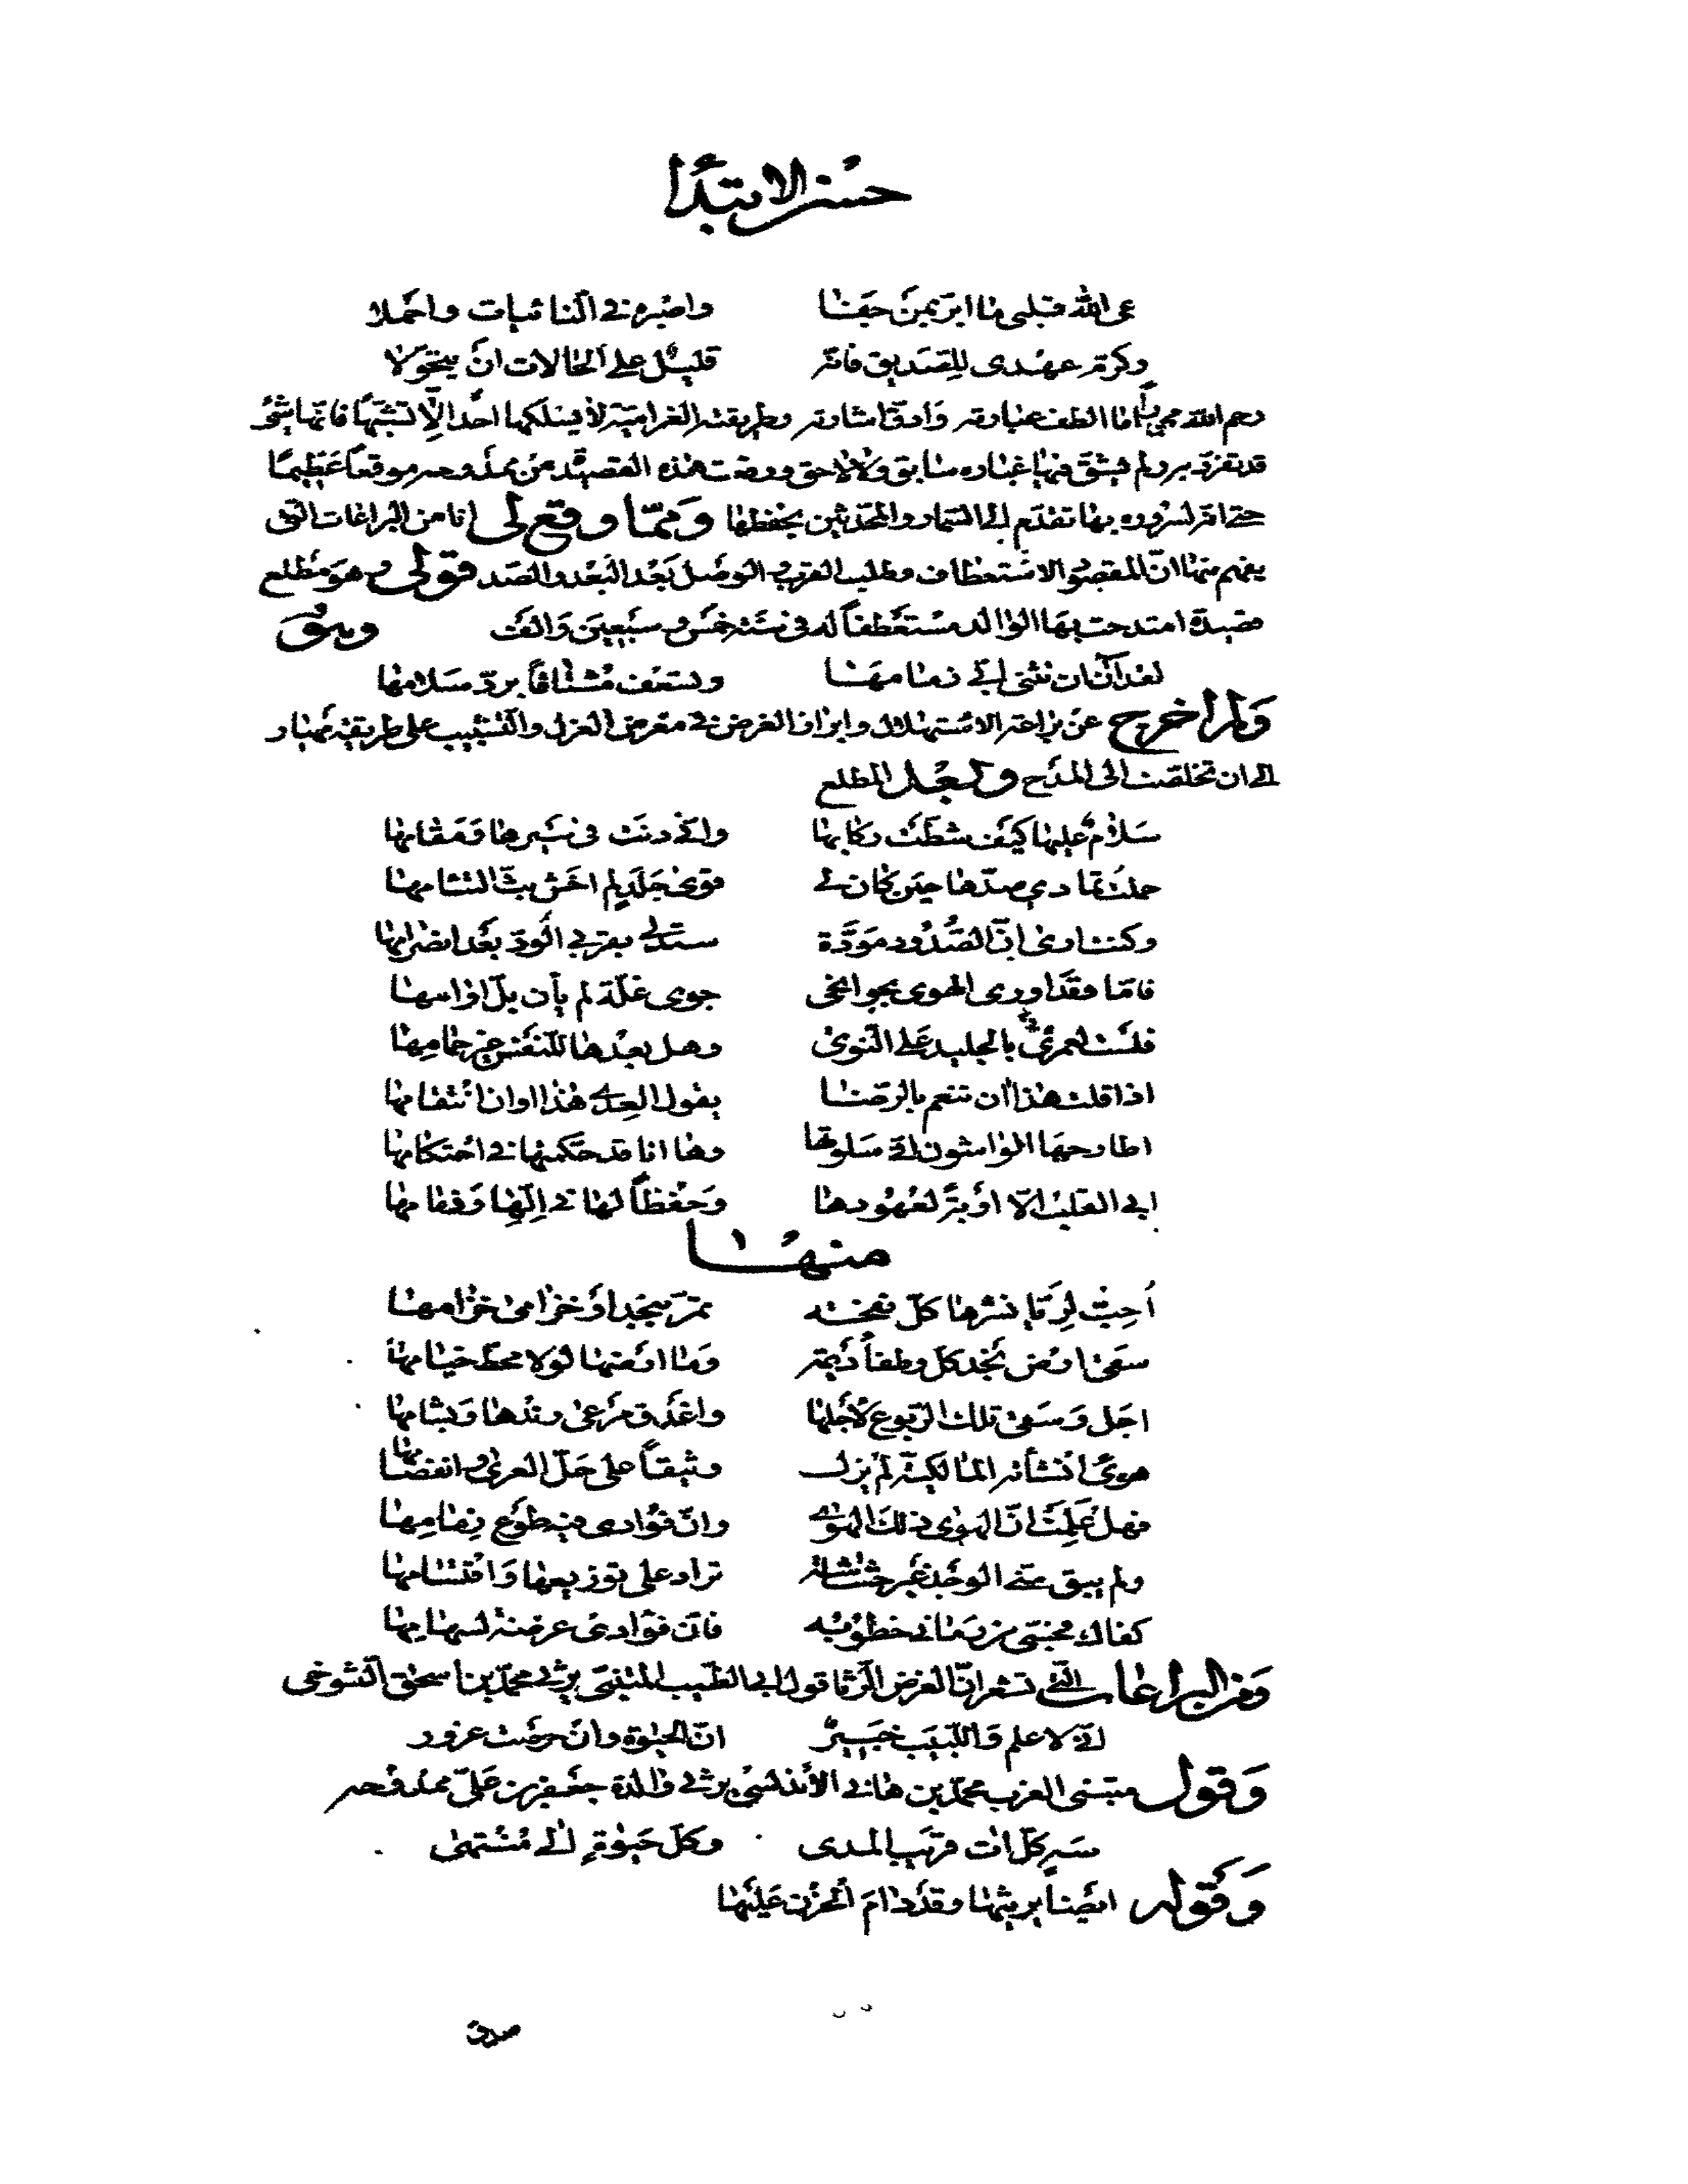 حسن الابتدا
عى الله قبلى ما ابر يمين حفنا واصبره فى النائبات واحملا
وكرم عهدى للصديق فانه قليل على الحالات ان يتحولا
رحم الله محيى ما الطف عبارته وادق اشارته وطريقته الغرامية لا يسلكها احد الا تشبها فانها شئ
قد تفرد به ولم يشق فيها غباره سابق ولا لاحق ووقعت هذه القصيدة من ممدوحه موقعا عظيما
حتى انه لسروره بها تقدم الى السمار والمحدثين بحفظها ومما وقع لى انا من البراعات التى
يفهم منها ان المقصود الاستعطاف وطلب القرب والوصل بعد البعد والصد قولى وهو مطلع
قصيدة امتدحت بها الوالد مستعطفا له فى سنة خمس وسبعين والف وهو
لقد آن ان تثنى ابى زمامها وتسعف مشتاقا برد سلامها
ولم اخرج عن براعة الاستهلال وابراز الغرض فى معرض الغزل والتشبيب على طريقة مهيار
الى ان تخلصت الى المدح وبعد المطلع
سلام عليها كيف شطت ركابها وانى دنت فى سيرها ومقامها
حملت تمادى صدها حين كان لى قوى جلد لم اخش بث التئامها
وكنت ارى ان الصدود مودة ستدلى بقربى الود بعد انصرامها
فاما وقد اورى الهوى بجوانحى جوى غلة لم يأن بل اوامها
فلست لعمرى بالجليد على النوى وهل بعدها للنفس غير حمامها
اذا قلت هذا آن تنعم بالرضا يقول العدى هذا اوان انتقامها
اطارحها الواشون انى سلوتها وها انا قد حكمتها فى احتكامها
ابى القلب الا اوبة لعهودها وحفظا لها فى الها وذمامها
منها
احب لريا نشرها كل نفحة تمر بنجد او خزامى خزامها
سقى ارض نجد كل وطفاء ديمة وما ارضها لولا محط خيامها
اجل وسقى تلك الربوع لاجلها واغدق مرعى رندها وبشامها
هوى انشأته المالكية لم يزل وثيقا على حل العرى وانفصامها
فهل علمت ان الهوى ذلك الهوى وان فؤادى فيه طوع زمامها
ولم يبق منى الوجد غير حشاشة تراد على توزيعها واقتسامها
كفاك محنتى من زمانى خطوبه فان فؤادى عرضة لسهامها
ومن البراعات التى تشعر ان الغرض الرثا قول ابى الطيب المتنبى يرثى محمد بن اسحق التنوخى
انى لاعلم واللبيب خبير ان الحيوة وان حرصت غرور
وقول متنبى الغرب محمد بن هانى الاندلسى يرثى والدة جعفر بن على ممدوحه
سير كل ات قريب المدى وكل حيوة الى منتهى
وكقوله ايضا يرثيها وقد دام الحزن عليها
صدق